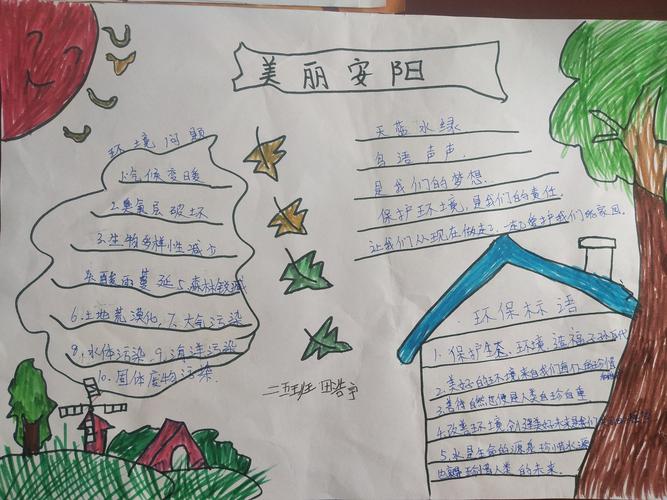 美丽安阳
环境问题
1.气候变暖
2.臭氧层破坏
3.生物多样性减少
4.酸雨蔓延 5.森林锐减
6.土地荒漠化, 7.大气污染
8.水体污染, 9.海洋污染
10.固体废物污染
天蓝水绿
鸟语声声
是我们的梦想
保护环境,是我们的责任.
让我们从现在做起,一起爱护我们的家园.
二五班 田浩宇
环保标语
1.保护生态环境 造福子孙后代
2.美好的环境来自我们每人的珍惜
3.善待自然也便是人类自珍自重
4.改善环境 创造美好未来是我们
5.水是生命的源泉 珍惜水源
也就是珍惜人类的未来.